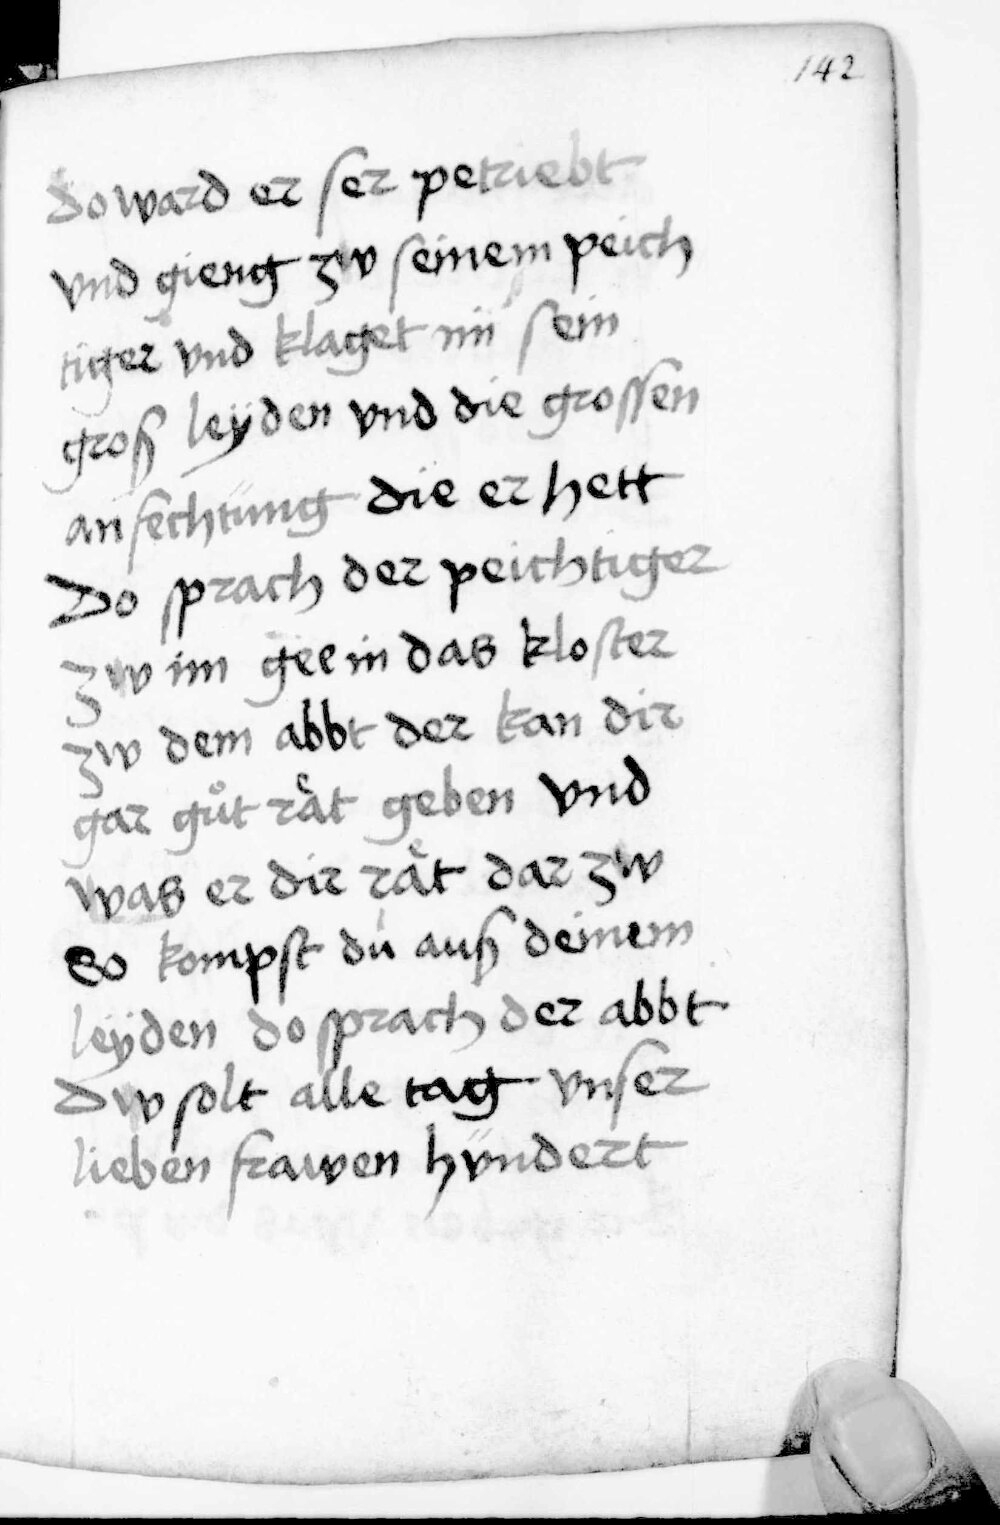 142
do ward er ser petriebt
vnd gieng zw seinem peich
tiger vnd klaget im sein
groß leÿden vnd die grossen
anfechtüng die er hett
Do sprach der peichtiger
zw im gee in das kloster
zw dem abbt der kan dir
gar gůt rät geben vnd
was er dir rät dar zw
So kompst dü auß deinem
leÿden do sprach der abbt
Dw solt alle tag vnser
lieben frawen hündert